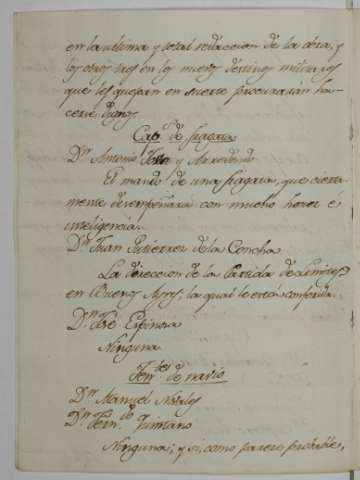 en la ultima y total redaccion de la obra, y
los otros tres en los nuevos destinos militares
que les quepan en suerte procuraràn ha-
cerse dignos.
Cap.s de fragata
D.n Antonio Tova y Arredondo
El mando de una fragata, que cierta-
mente desempeñarà con mucho honor è
inteligencia.
D.n Juan Gutierrez de la Concha
La direccion de la Partida de Limites
en Buenos Ayres, la qual le està conferida.
D.n Josè Espinosa
Ninguna
Ten.tes de navio
D.n Manuel Novales
D.n Fern.do Quintano
Ninguna; y si, como parece probable,